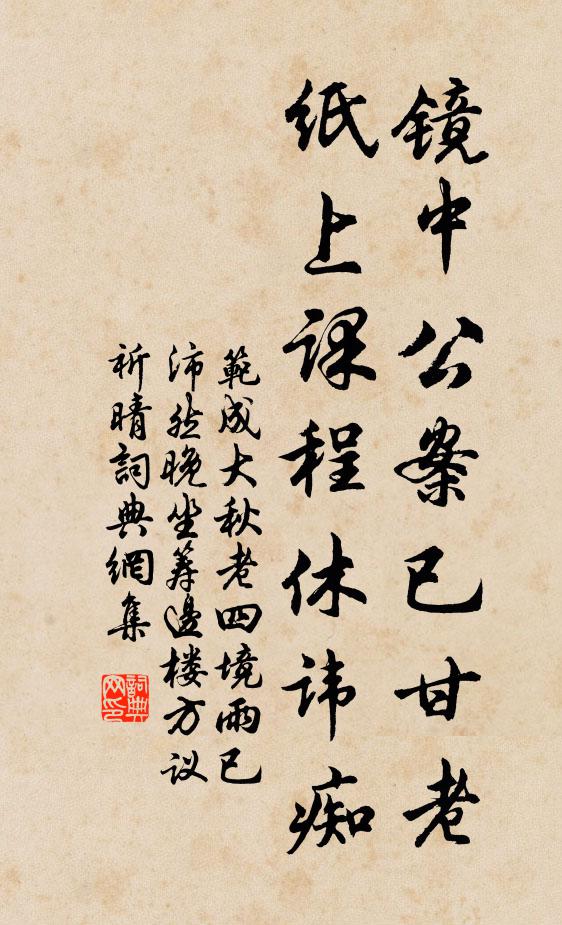 镜中公案已甘老
纸上课程休讳痴
範成大秋老四境雨已
沛然晚坐筹邊楼方议
祈晴詞典網集
詞典
网印